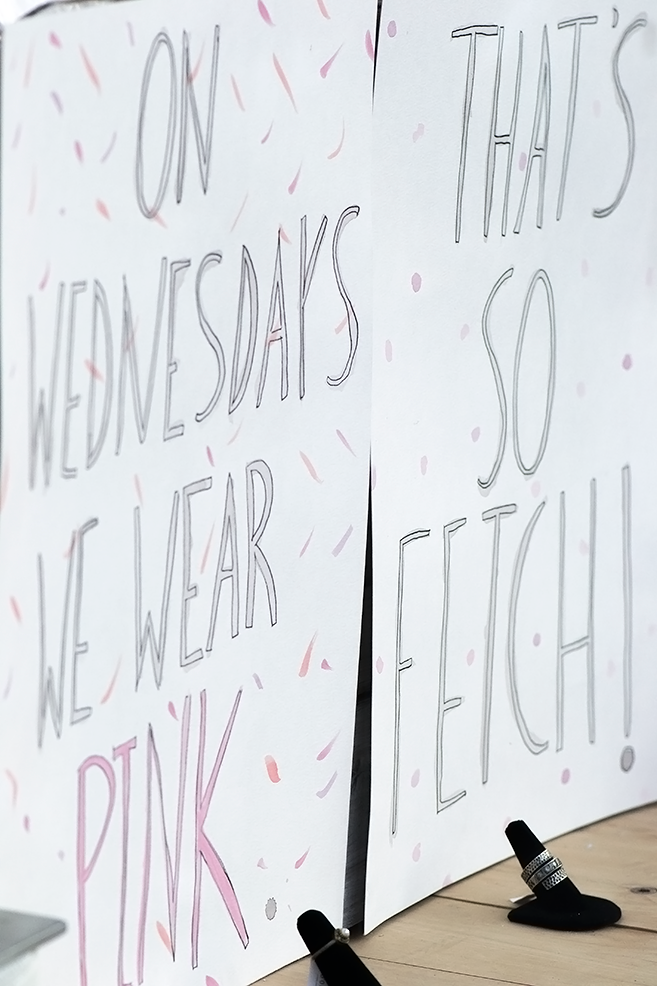 ON
WEDNESDAYS
WE WEAR
PINK
THAT'S
SO
FETCH!